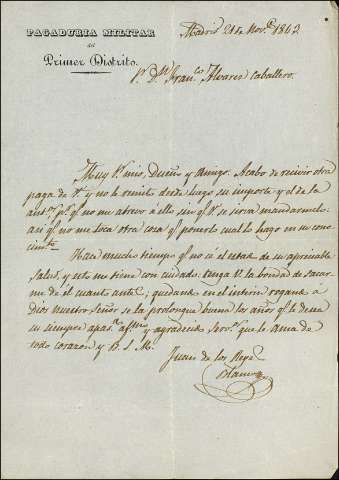 PAGADURIA MILITAR
del
Primer Distrito.
Madrid 21 de Nov.e 1842
S.r D.n Fran.co Alvarez Caballero.
Muy S.r mio, Dueño y Amigo. Acabo de recivir otra
paga de V. y no le remito desde luego su importe y el de la
ant.or p.r q.e no me atrevo á ello sin q.e V. se sirva mandarmelo:
asi q.e no me toca otra cosa q.e ponerlo cual lo hago en su cono-
cim.to
Hace mucho tiempo q.e no sé el estado de su apreciable
salud, y esto me tiene con cuidado: tenga V. la bondad de sacar-
me de él cuanto antes; quedando en el interin rogando á
Dios nuestro Señor se la prolongue buena los años q.e le desea
su siempre apas.do af.mo y agradecido serv.or que le ama de
todo corazon y B. S. M.
Juan de los Reyes
Blanco